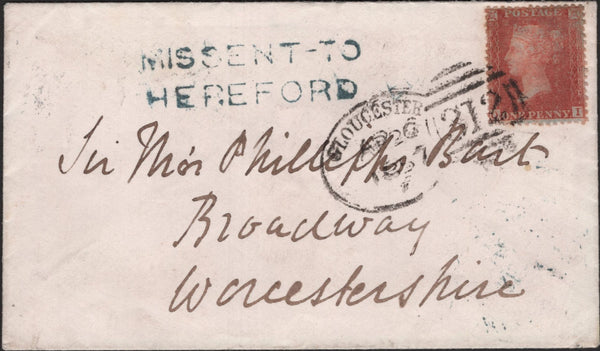 MISSENT-TO
HEREFORD
POSTAGE
ONE PENNY
I
GLOUCESTER
312
Sir Thos Phillipps Bart
Broadway
Worcestershire